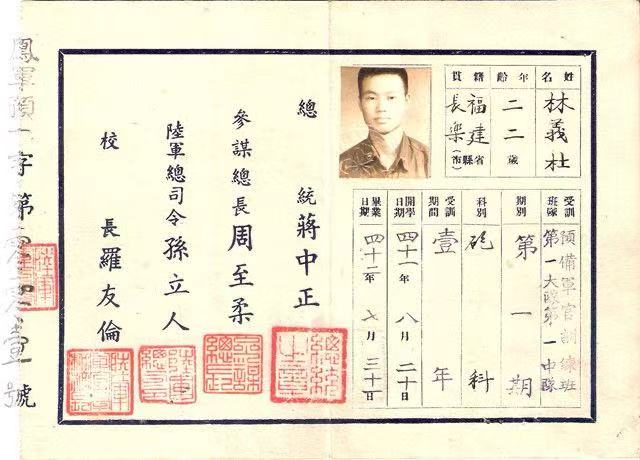 姓名 林義杜
年齡 二二歲
籍貫 福建省長樂縣(市)
受訓班隊 預備軍官訓練班第一大隊第一中隊
期別 第一期
科別 砲科
受訓期間 壹年
開學日期 四十一年八月二十日
畢業日期 四十二年七月三十一日
總統 蔣中正
參謀總長 周至柔
陸軍總司令 孫立人
校長 羅友倫
鳳軍預一字第零零壹號